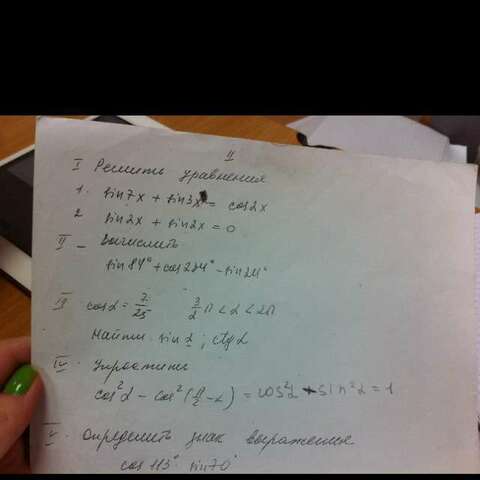 II
I Решить уравнения
1. sin7x + sin3x = cos2x
2 sin2x + sin2x = 0
II - Вычислить
sin84° + cos234° - sin24°
III cosα = 7/25 3/2 π < α < 2π
Найти: sin α ; ctg α
IV. Упростить
cos²α - cos²(π/2 - α) = cos²α + sin²α = 1
V. Определить знак выражения
cos 113° · sin 70°